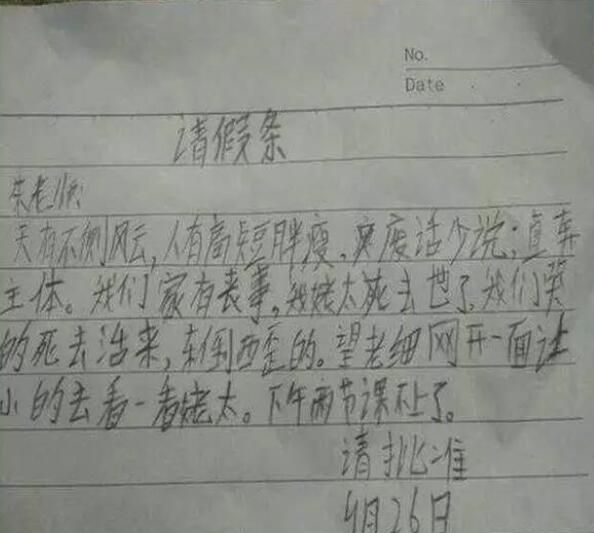 No.
Date
请假条
朱老师:
天有不侧风云,人有高短胖瘦,废话少说;直奔
主体。我们家有丧事,我姥太死去世了,我们哭
的死去活来,东倒西歪的。望老细网开一面让
小的去看一看姥太。下午两节课不上了。
请批准
4月26日